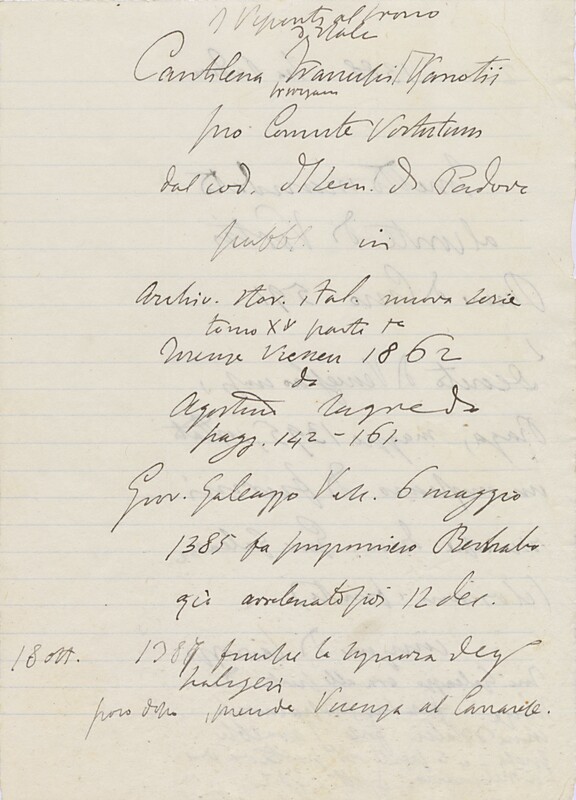 I Visconti al
Cantilena Francisci Vanotii
pro Comite Virtutum
dal cod. di Sem. di Padova
pubbl. in
Archiv. stor. ital. nuova serie
tomo XV parte 1a
Firenze Vieusseux 1862
da
Agostino Sagredo
pagg. 142-161.
Giov. Galeazzo Visc. 6 maggio
1385 fa prigioniero Bernabo
avvelenato poi 12 dec.
18 ott. 1387 finisce la signoria degl
Scaligeri
poco dopo, prende Vicenza al Carrarese.